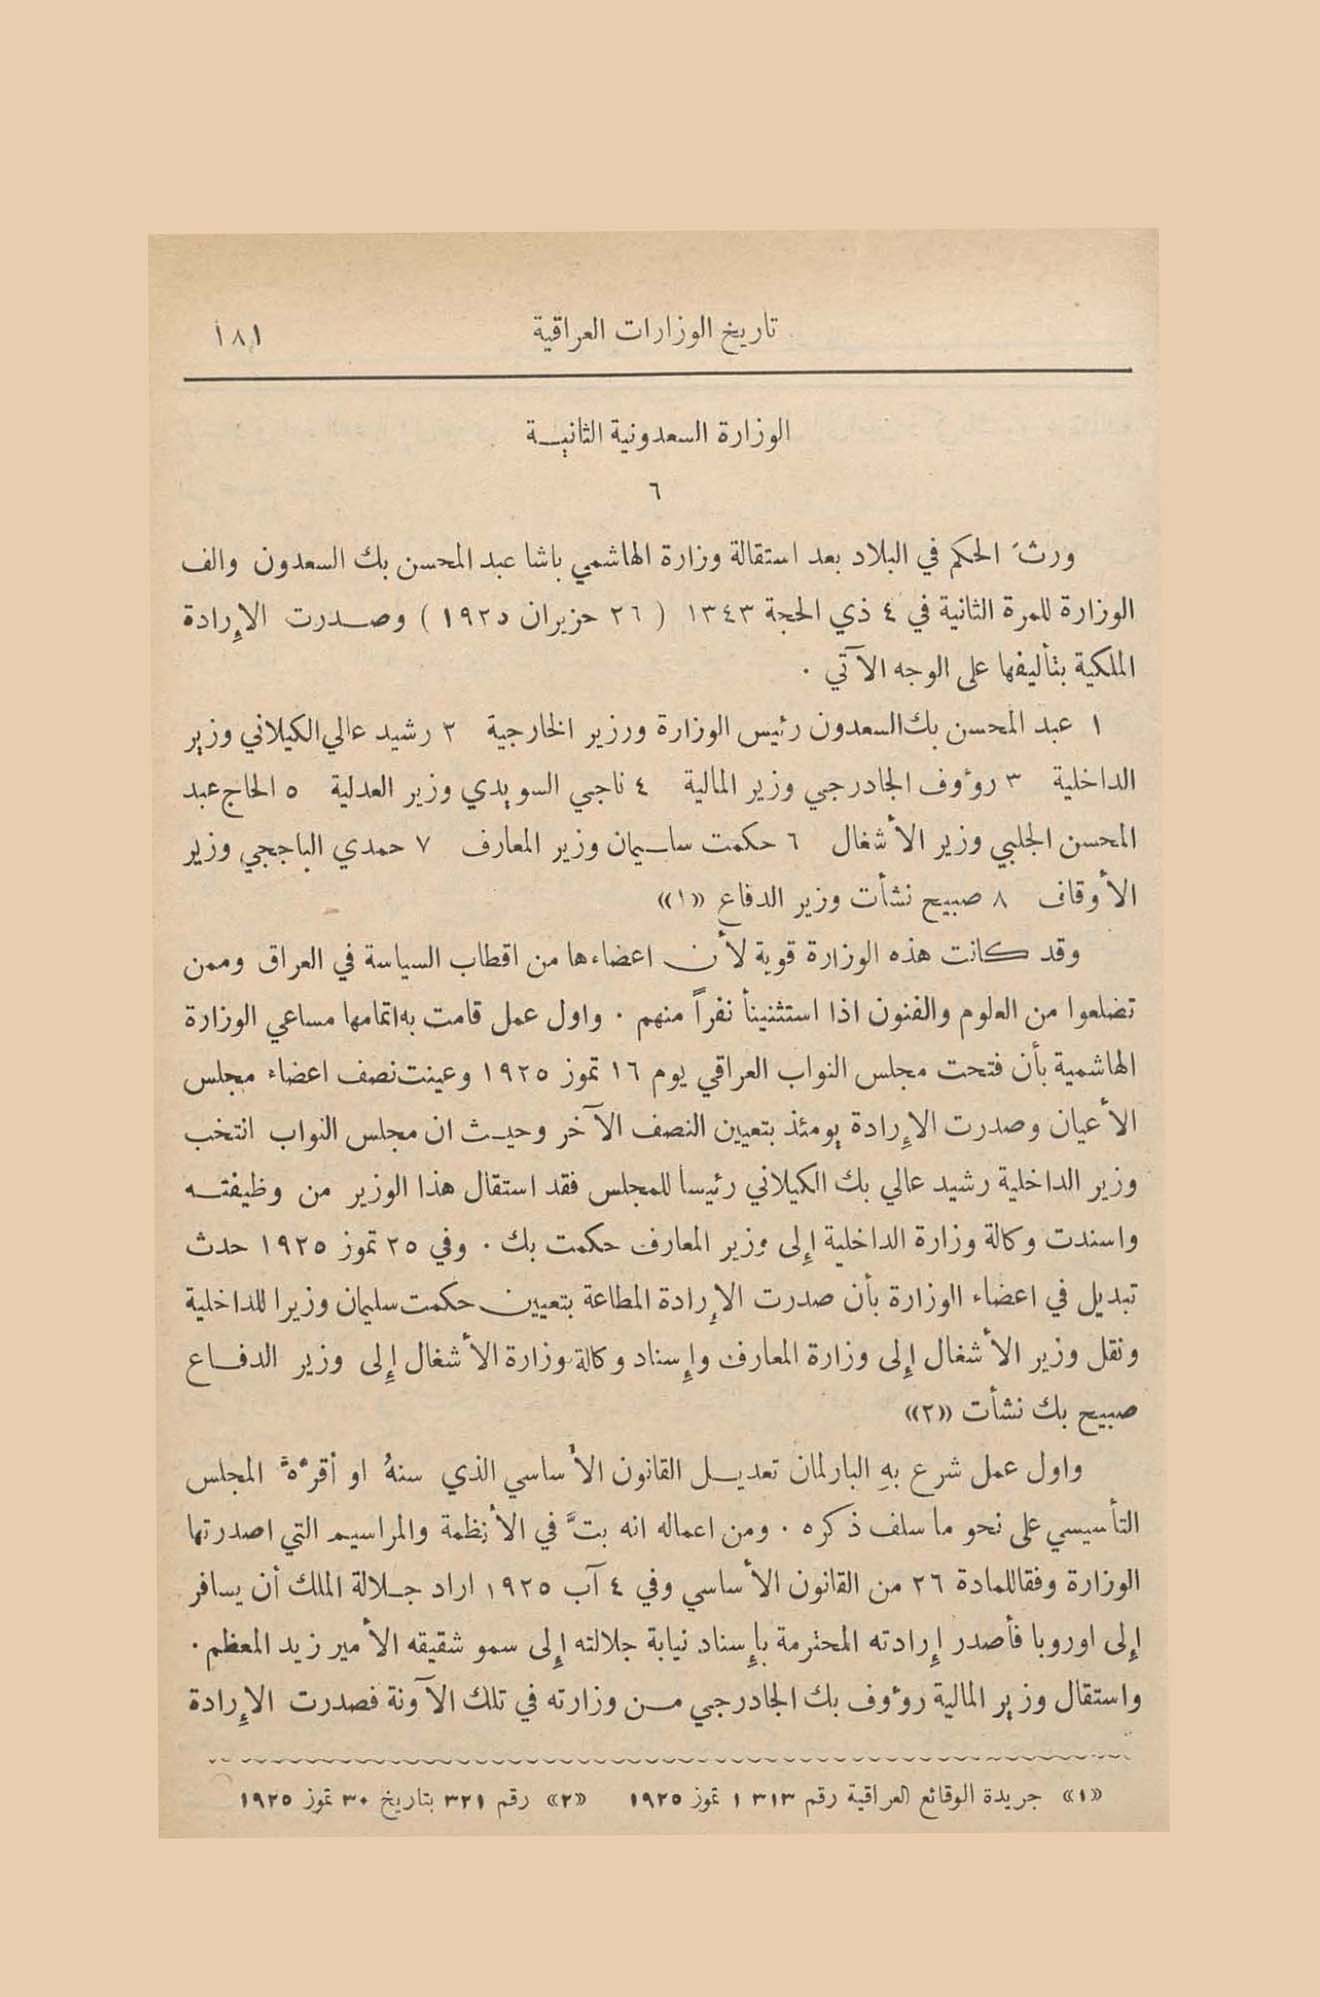 تاريخ الوزارات العراقية ١٨١
الوزارة السعدونية الثانيـة
٦
ورثَ الحكم في البلاد بعد استقالة وزارة الهاشمي باشا عبد المحسن بك السعدون والف
الوزارة للمرة الثانية في ٤ ذي الحجة ١٣٤٣ ( ٢٦ حزيران ١٩٢٥ ) وصــدرت الإرادة
الملكية بتأليفها على الوجه الآتي .
١ عبد المحسن بك السعدون رئيس الوزارة ورزير الخارجية ٢ رشيد عالي الكيلاني وزير
الداخلية ٣ رؤوف الجادرجي وزير المالية ٤ ناجي السويدي وزير العدلية ٥ الحاج عبد
المحسن الجلبي وزير الأشغال ٦ حكمت سليمان وزير المعارف ٧ حمدي الباججي وزير
الأوقاف ٨ صبيح نشأت وزير الدفاع «١»
وقد كانت هذه الوزارة قوية لأن اعضاءها من اقطاب السياسة في العراق وممن
تضلعوا من العلوم والفنون اذا استثنينأ نفراً منهم . واول عمل قامت به اتمامها مساعي الوزارة
الهاشمية بأن فتحت مجلس النواب العراقي يوم ١٦ تموز ١٩٢٥ وعينت نصف اعضاء مجلس
الأعيان وصدرت الإرادة يومئذ بتعيين النصف الآخر وحيـث ان مجلس النواب انتخب
وزير الداخلية رشيد عالي بك الكيلاني رئيسا للمجلس فقد استقال هذا الوزير من وظيفتـه
واسندت وكالة وزارة الداخلية إلى وزير المعارف حكمت بك . وفي ٢٥ تموز ١٩٢٥ حدث
تبديل في اعضاء الوزارة بأن صدرت الإرادة المطاعة بتعيين حكمت سليمان وزيرا للداخلية
ونقل وزير الأشغال إلى وزارة المعارف وإسناد وكالة وزارة الأشغال إلى وزير الدفــاع
صبيح بك نشأت «٢»
واول عمل شرع بهِ البارلمان تعديـل القانون الأساسي الذي سنهُ او أقرهُ المجلس
التأسيسي على نحو ما سلف ذكره . ومن اعماله انه بتَّ في الأنظمة والمراسيم التي اصدرتها
الوزارة وفقا للمادة ٢٦ من القانون الأساسي وفي ٤ آب ١٩٢٥ اراد جـلالة الملك أن يسافر
إلى اوروبا فأصدر إرادته المحترمة بإسناد نيابة جلالته إلى سمو شقيقه الأمير زيد المعظم .
واستقال وزير المالية رؤوف بك الجادرجي مـن وزارته في تلك الآونة فصدرت الإرادة
«١» جريدة الوقائع العراقية رقم ٣١٣ ١ تموز ١٩٢٥ «٢» رقم ٣٢١ بتاريخ ٣٠ تموز ١٩٢٥